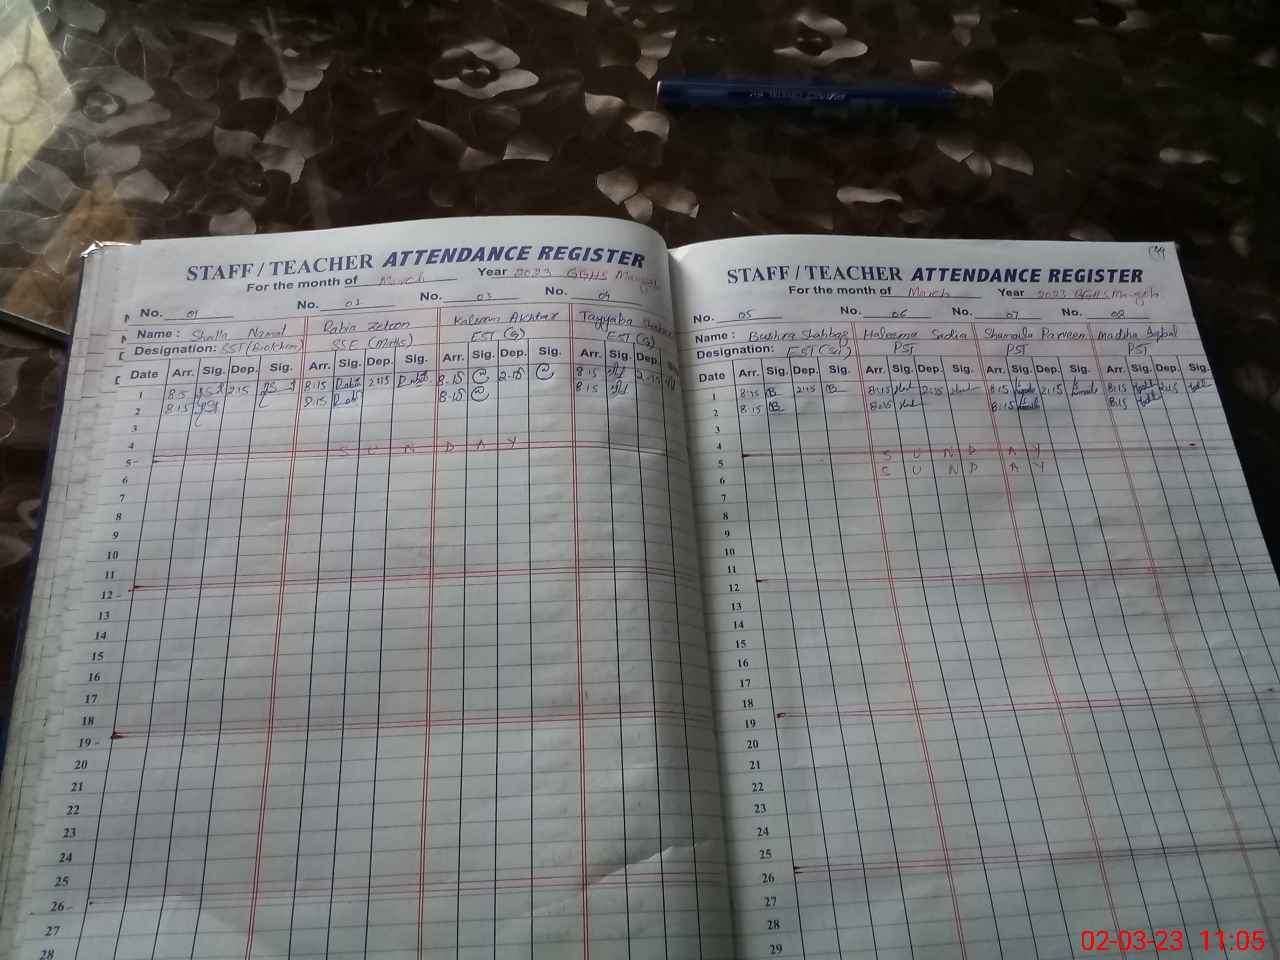 STAFF / TEACHER ATTENDANCE REGISTER
For the month of March Year 2023 GGHS
No. 01 No. 02 No. 03 No. 04
Name : Shaila Rabia Kalsoom Akhtar Tayyaba
Designation: SST SSE (Maths) EST (G) EST (G)
Date Arr. Sig. Dep. Sig. Arr. Sig. Dep. Sig. Arr. Sig. Dep. Sig. Arr. Sig. Dep.
1 8:15 2:15 8:15 2:15 8-15 2-15 8:15 2-15
2 8:15 8:15 8-15 8:15
3
4 S U N D A Y
5
6
7
8
9
10
11
12
13
14
15
16
17
18
19
20
21
22
23
24
25
26
27
28
STAFF / TEACHER ATTENDANCE REGISTER
For the month of March Year 2023 GGHS
No. 05 No. 06 No. 07 No. 08
Name : Bushra Shahbaz Haleema Sadia Shamaila Parveen Madiha Iqbal
Designation: EST (Sci) PST PST PST
Date Arr. Sig. Dep. Sig. Arr. Sig. Dep. Sig. Arr. Sig. Dep. Sig. Arr. Sig. Dep. Sig.
1 8:15 2:15 8:15 2:15 8:15 2:15 8:15 2:15
2 8:15 8:15 8:15 8:15
3
4 S U N D A Y
5 S U N D A Y
6
7
8
9
10
11
12
13
14
15
16
17
18
19
20
21
22
23
24
25
26
27
28
29
02-03-23 11:05